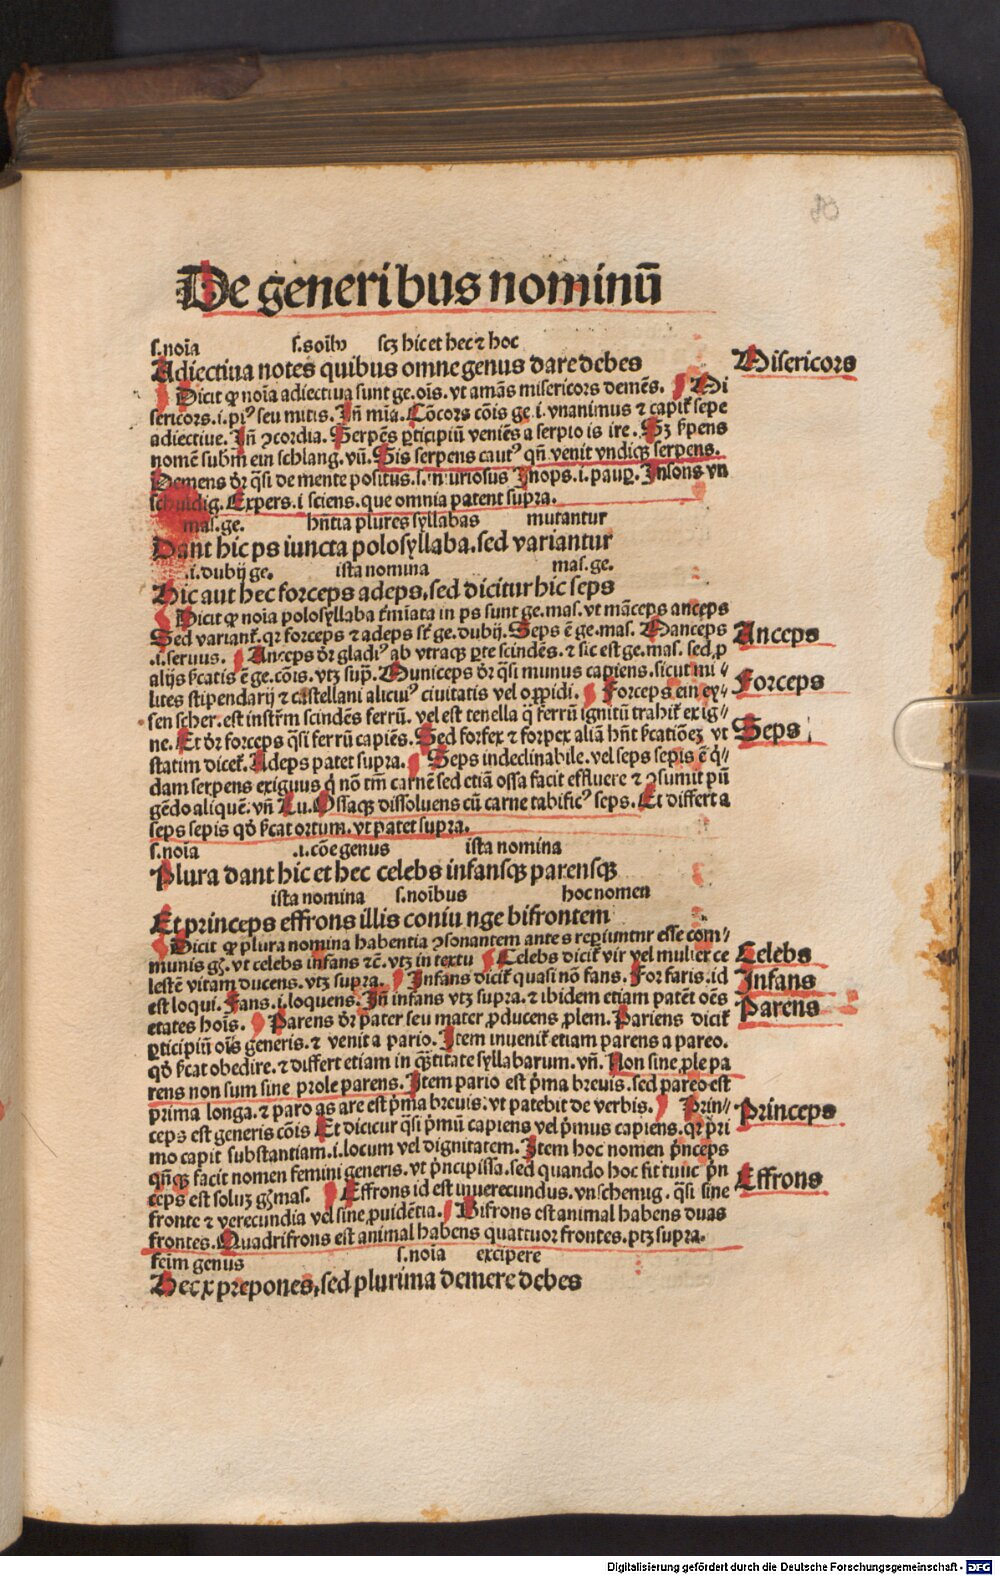 De generibus nominū
s.noīa s.noīb⁹ scꝫ hic et hec ⁊ hoc
Adiectiua notes quibus omne genus dare debes
Misericors
Dicit ꝙ noīa adiectiua sunt ge.oīs. vt amās misericors demēs. Mi
sericors.i.pi⁹ seu mitis. Jn̄ mīa. Cōcors cōis ge.i.vnanimus ⁊ capit᷑ sepe
adiectiue. Jn̄ ꝯcordia. Serpēs ꝑticipiū veniēs a serpio is ire. Sꝫ ẜpens
nomē sub̄m ein schlang. vn̄. Sis serpens caut⁹ qn̄ venit vndiqꝫ serpens.
Demens dr̄ qͣsi de mente positus.s. Jnops.i.paup̲. Jnsons vn
schuldig. Expers.i sciens.que omnia patent supra.
mas.ge. hn̄tia plures syllabas mutantur
Dant hic ps iuncta polosyllaba.sed variantur
.i.dubij ge. ista nomina mas.ge.
Hic aut hec forceps adeps,sed dicitur hic seps
Dicit ꝙ noīa polosyllaba t̄miata in ps sunt ge.mas. vt māceps anceps
Sed variant᷑.qr forceps ⁊ adeps st̄ ge.dubij. Seps ē ge.mas. Manceps
Anceps
.i.seruus. Anceps dr̄ gladi⁹ ab vtraqꝫ ꝑte scindēs. ⁊ sic est ge.mas. sed ꝓ
alijs ẜcatis ē ge.cōis. vtꝫ sup̄. Municeps dr̄ qͣsi munus capiens. sicut mi⸗
Forceps
lites stipendarij ⁊ castellani alicui⁹ ciuitatis vel oppidi. Forceps ein ey⸗
sen scher. est instr̄m scindēs ferrū. vel est tenella q̄ ferrū ignitū trahit᷑ ex ig⸗
Seps
ne. Et dr̄ forceps qͣsi ferrū capiēs. Sed forfex ⁊ forpex aliā hn̄t ẜcatiōeꝫ vt
statim dicet᷑. Adeps patet supra. Seps indeclinabile. vel seps sepis ē q̇⸗
dam serpens exiguus q̇ nō tm̄ carnē sed etiā ossa facit effluere ⁊ ꝯsumit pū
gēdo aliquē. vn̄ Lu. Ossaqꝫ dissoluens cū carne tabific⁹ seps. Et differt a
seps sepis qd̄ ẜcat ortum. vt patet supra.
s.noīa .i.cōe genus ista nomina
Plura dant hic et hec celebs infansqꝫ parensqꝫ
ista nomina s.noībus hoc nomen
Et princeps effrons illis coniu nge bifrontem
Dicit ꝙ plura nomina habentia ꝯsonantem ante s reꝑiuntnr esse com⸗
Celebs
munis gn̄. vt celebs infans ⁊c̄. vtꝫ in textu Celebs dicit᷑ vir vel mulier ce
Infans
lestē vitam ducens. vtꝫ supra. Jnfans dicit᷑ quasi nō fans. For faris.id
Parens
est loqui. Fans.i.loquens. Jn̄ infans vtꝫ supra. ⁊ ibidem etiam patēt oēs
etates hoīs. Parens dr̄ pater seu mater ꝓducens ꝓlem. Pariens dicit᷑
ꝑticipiū oīs generis. ⁊ venit a pario. Jtem inuenit᷑ etiam parens a pareo.
qd̄ ẜcat obedire. ⁊ differt etiam in qͣntitate syllabarum. vn̄. Non sine ꝓle pa
rens non sum sine prole parens. Jtem pario est pͥma breuis. sed pareo est
prima longa. ⁊ paro as are est pͥma breuis. vt patebit de verbis. Prin⸗
Princeps
ceps est generis cōis Et dicicur qͣsi pͥmū capiens vel pͥmus capiens. qr pri
mo capit substantiam.i.locum vel dignitatem. Jtem hoc nomen pͥnceps
qn̄qꝫ facit nomen femini generis. vt pͥncipissa. sed quando hoc fit tuuc pͥn
Effrons
ceps est soluꝫ gn̄ mas. Effrons id est inuerecundus. vnschemig. qͣsi sine
fronte ⁊ verecundia vel sine ꝓuidētia. Bifrons est animal habens duas
frontes. Quadrifrons est animal habens quattuor frontes. ptꝫ supra.
feīm genus s.noīa excipere
Hec x prepones,sed plurima demere debes
Digitalisierung gefördert durch die Deutsche Forschungsgemeinschaft - DFG